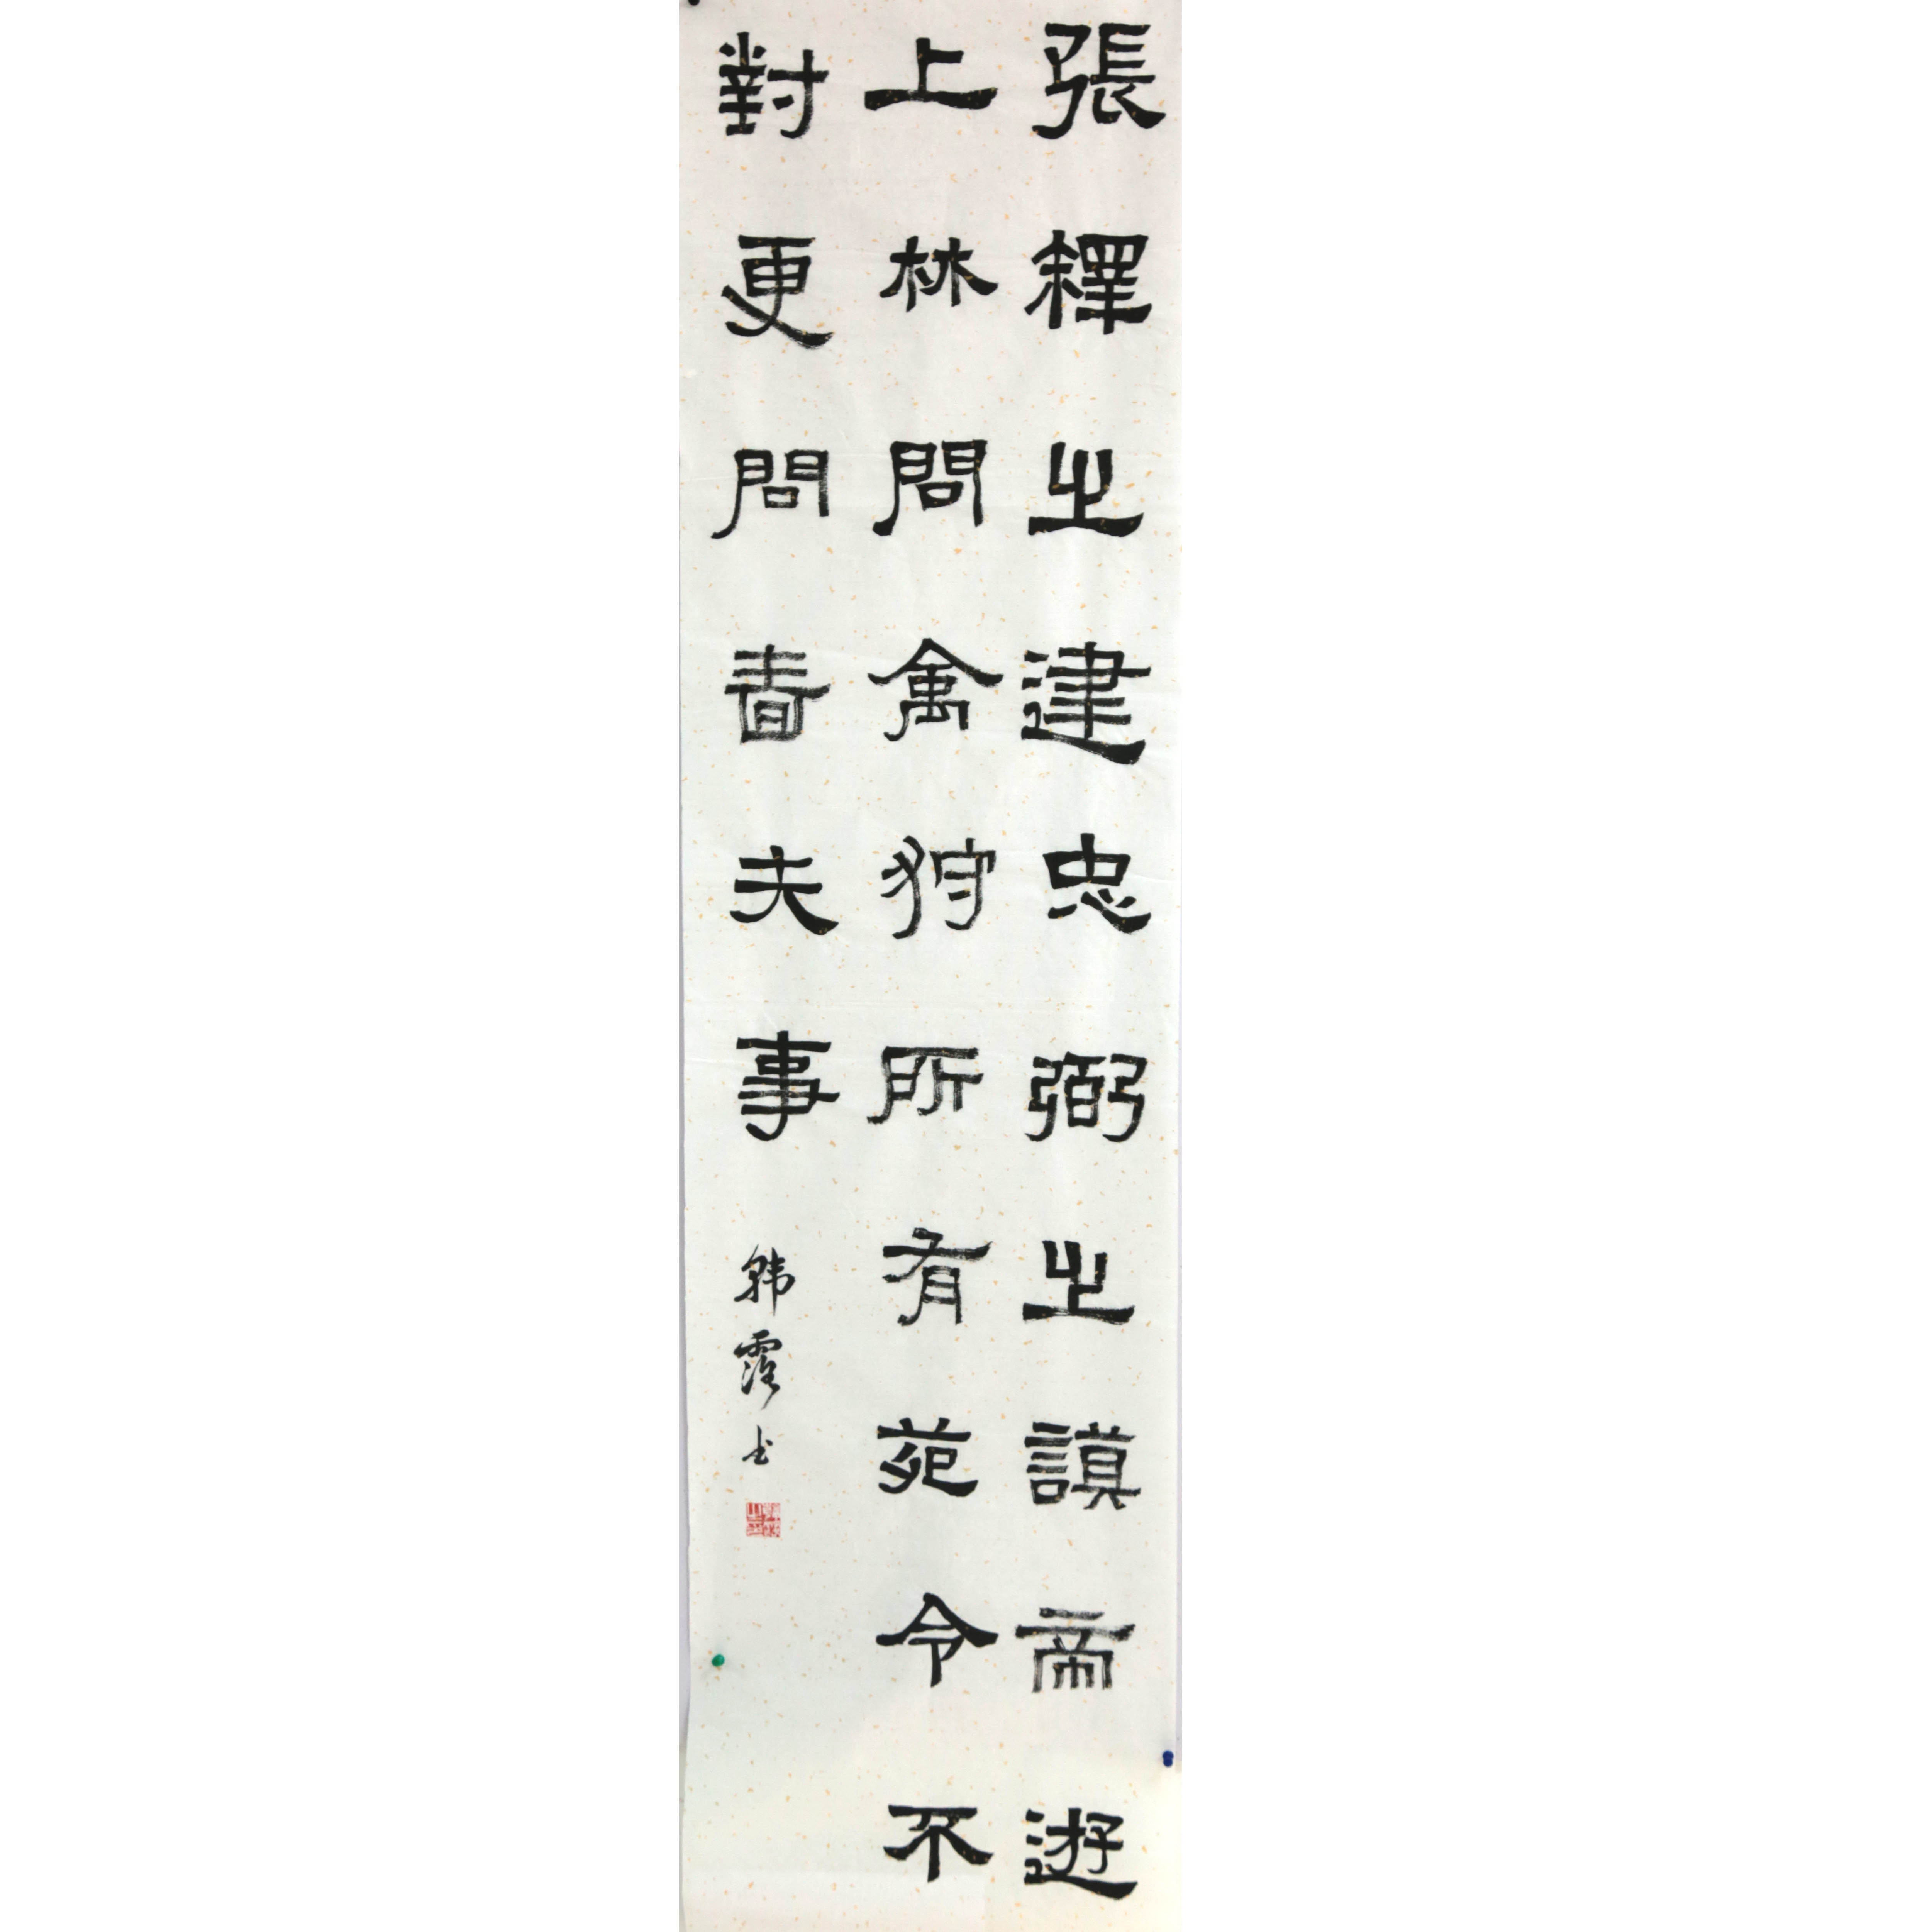 張釋之建忠弼之謨帝遊
上林問禽狩所有苑令不
對更問嗇夫事
韓霞书